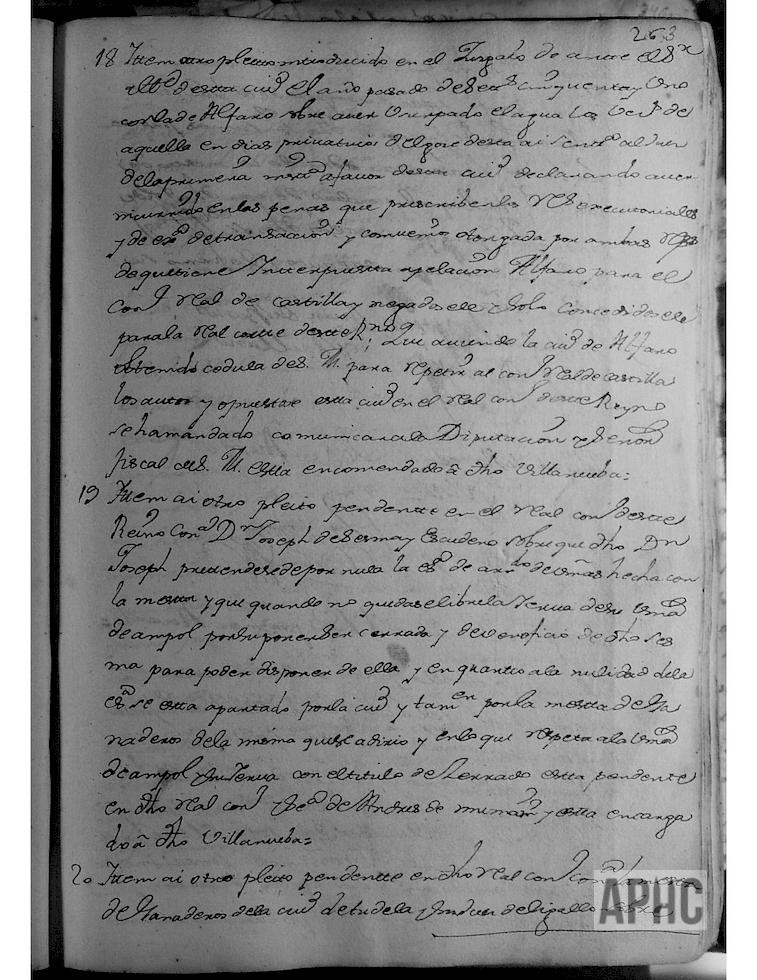 263
18 Ittem otro pleito introducido en el Juzgado de ante el Sr
Alcde desta ciud el año pasado de setts cinquenta y Uno
con la de Alfaro sobre aver Usurpado el agua los Vecs de
aquella en dias privativos del goze desta ai sentta al
de la primera insta a favor desta ciud declarando aver
incurrido en las penas que prescriben las Rs executoriales
y de esra de transaccion y convenio otorgada por ambas Reps
de que tiene Interpuesta apelacion Alfaro para el
Conso Real de castilla y negadosele y solo concedidosele
para la Real corte deste Rno, Que aviendo la ciud de Alfaro
obtenido cedula de S. M. para repetir al conso Real de castilla
los autos y opuestase esta ciud en el Real conso deste Reyno
se ha mandado comunicar a la Diputacion y Señor
fiscal de S. M. esta encomendado a dho Villanueba=
19 Ittem ai otro pleito pendente en el Real conso deste
Reino Contra Dn Joseph de Sesma y Escudero sobre que dho Dn
Joseph pretende se de por nula la esra de hecha con
la mesta y que quando no quedase libre la Yerva de su
de ampol por suponer ser cerrado y de veneficio de dho Ses
ma para poder disponer de ella y en quanto a la nulidad de la
esra se esta apartado por la ciud y tamen por la mesta de Ga
naderos de la misma quise adirio y en lo que respeta a la
de ampol y su Yerva con el titulo de Serrado esta pendente
en dho Real conso y Seca de Andres de y esta encarga
do a dho Villanueba=
20 Ittem ai otro pleito pendente en dho Real conso contra la mesta
de Ganaderos de la ciud de tudela y Juduee de ligallo sobre
APHC